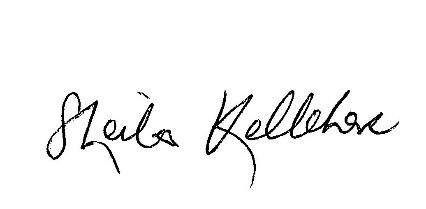 Sheila Kelleher